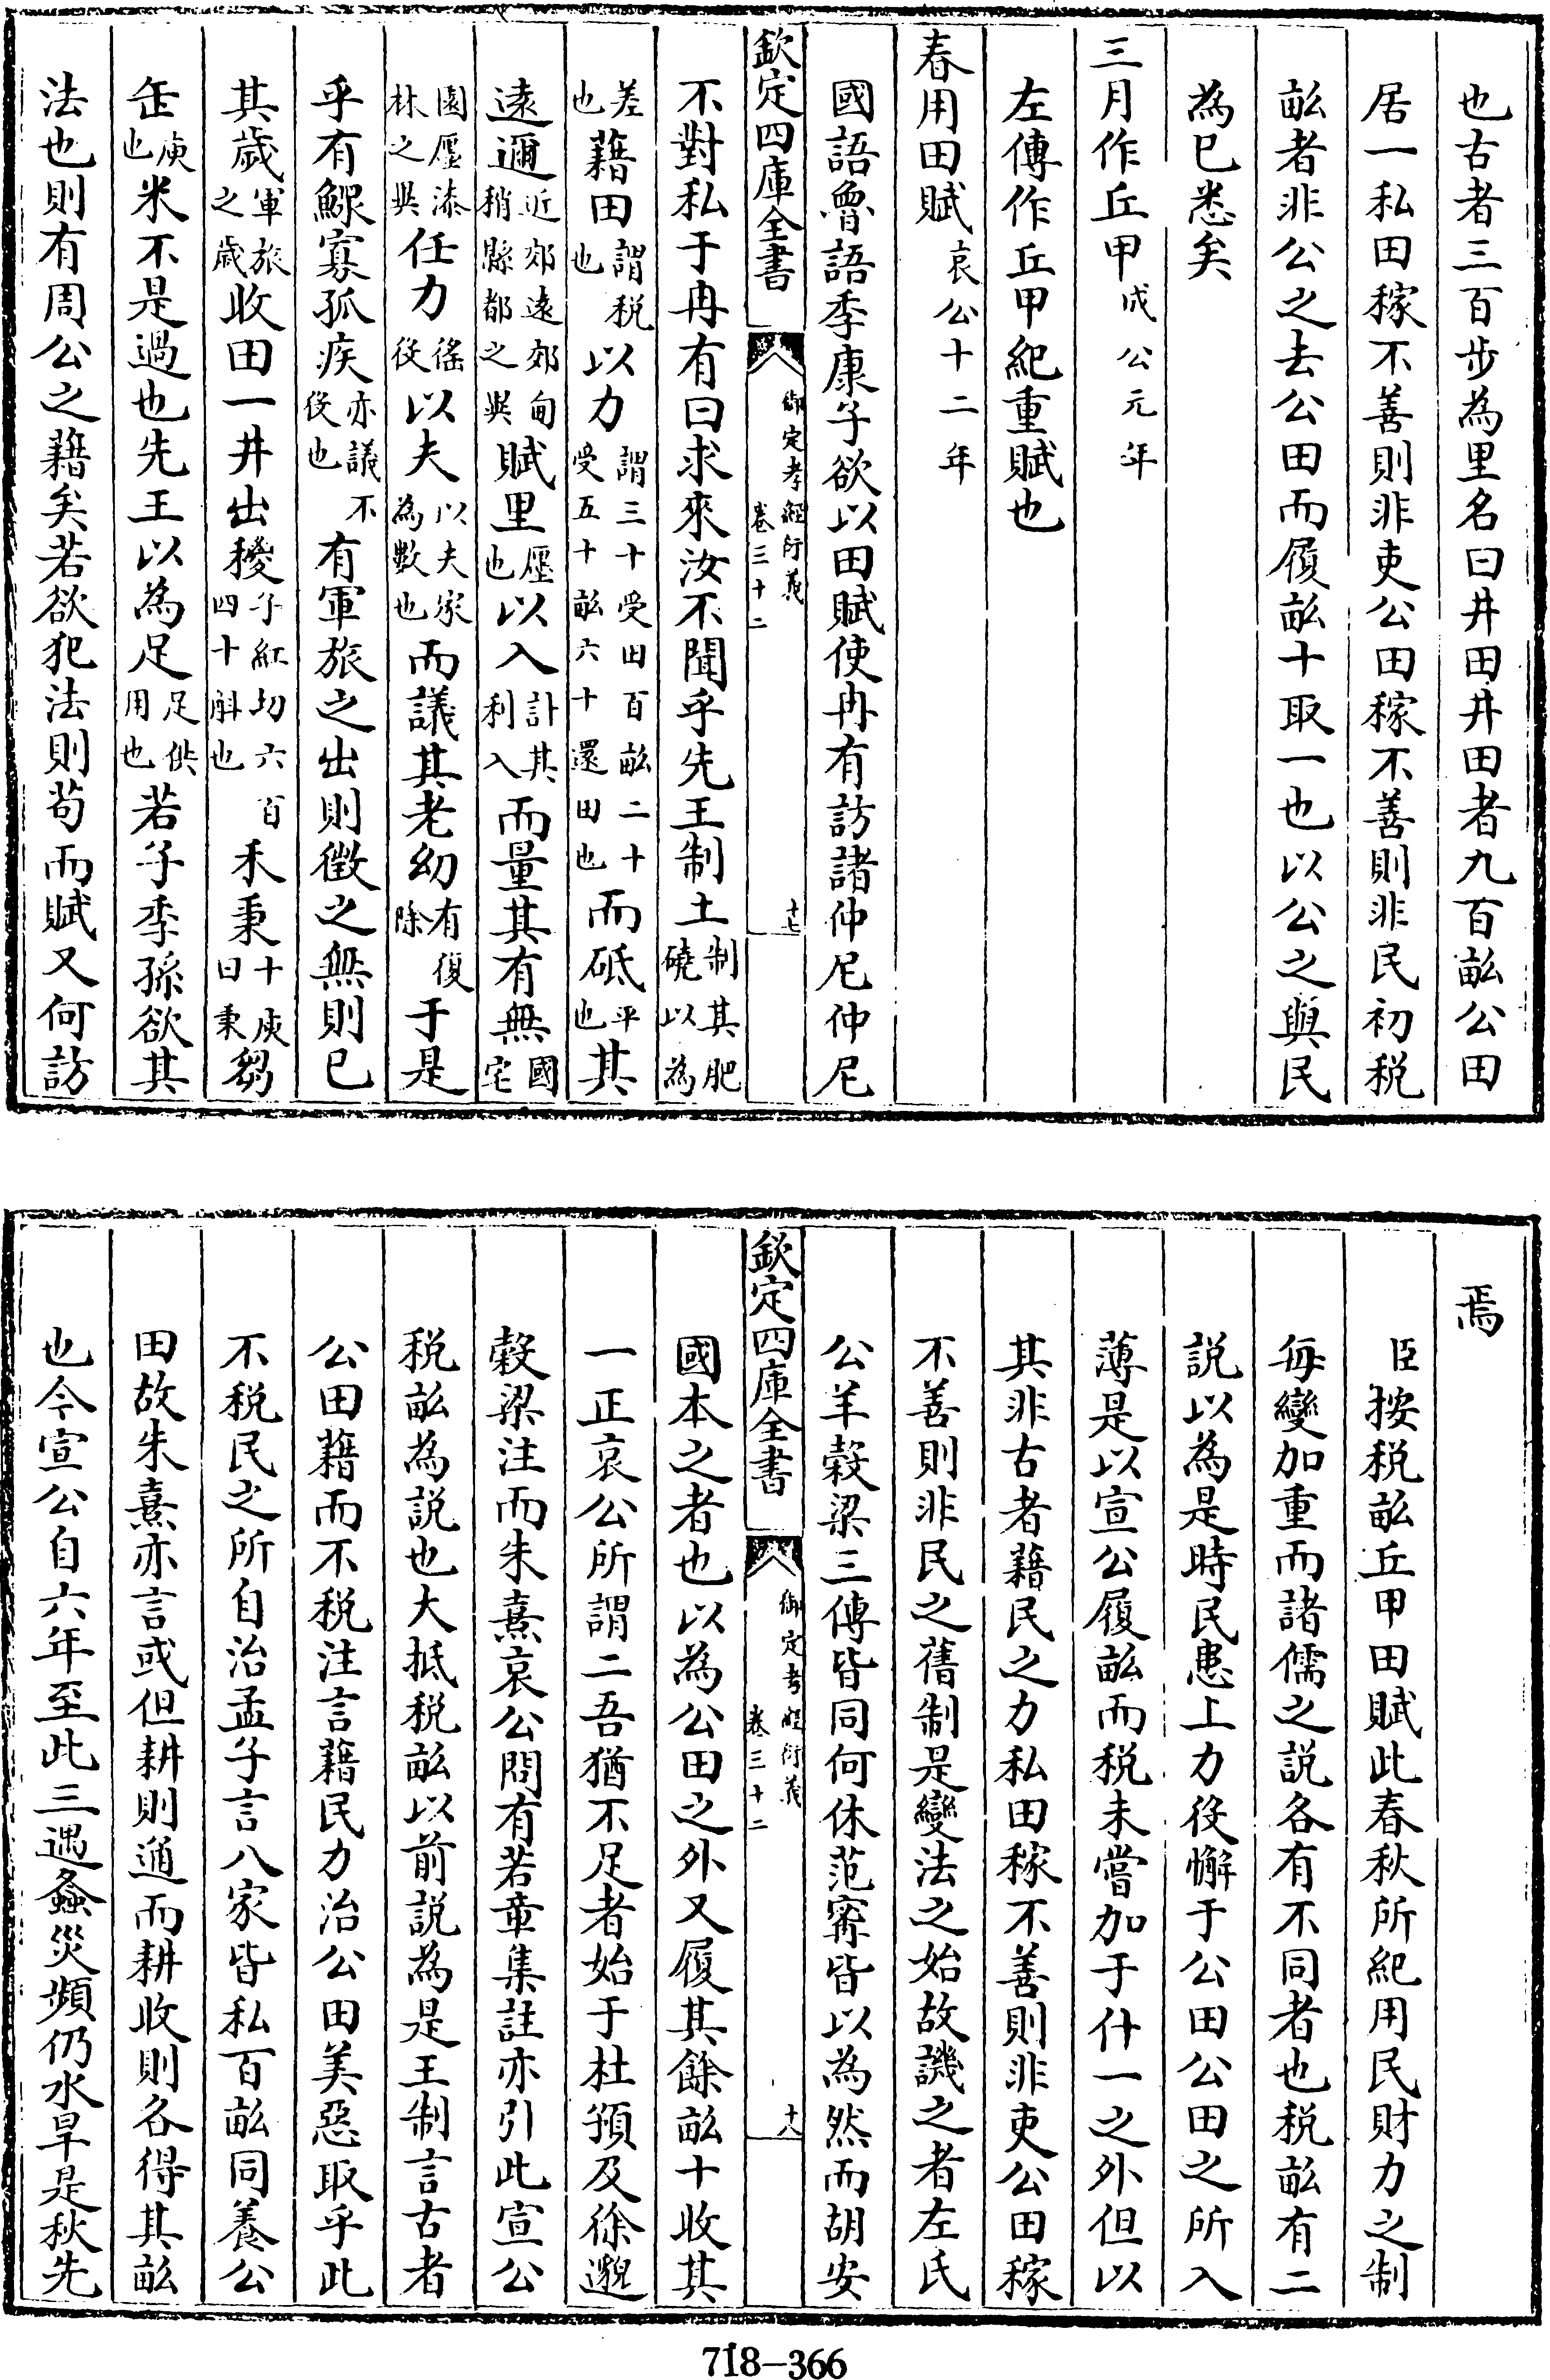 也古者三百步為里名曰井田井田者九百畝公田
居一私田稼不善則非吏公田稼不善則非民初税
畝者非公之去公田而履畝十取一也以公之與民
為已悉矣
三月作丘甲成公元年
左傳作丘甲紀重賦也
春用田賦哀公十二年
國語魯語季康子欲以田賦使冉有訪諸仲尼仲尼
欽定四庫全書
御定孝經衍義
卷三十二
十七
不對私于冉有曰求來汝不聞乎先王制土制其肥磽以為
差也藉田謂税也以力謂三十受田百畝二十受五十畝六十還田也而砥平也其
遠邇近郊遠郊甸稍縣都之與賦里廛也以入計其利入而量其有無國宅
園廛漆林之與任力徭役以夫以夫家為數也而議其老幼有復除于是
乎有鰥寡孤疾亦議不役也有軍旅之出則徵之無則已
其歲軍旅之歲收田一井出稯子紅切六百四十斛也禾秉十庾曰秉芻
缶庾也米不是過也先王以為足足供用也若子季孫欲其
法也則有周公之藉矣若欲犯法則苟而賦又何訪
焉
臣按税畝丘甲田賦此春秋所紀用民財力之制
每變加重而諸儒之説各有不同者也税畝有二
説以為是時民患上力役懈于公田公田之所入
薄是以宣公履畝而税未嘗加于什一之外但以
其非古者藉民之力私田稼不善則非吏公田稼
不善則非民之舊制是變法之始故譏之者左氏
公羊榖梁三傳皆同何休范甯皆以為然而胡安
欽定四庫全書
御定孝經衍義
卷三十二
十八
國本之者也以為公田之外又履其餘畝十收其
一正哀公所謂二吾猶不足者始于杜預及徐邈
榖梁注而朱熹哀公問有若章集註亦引此宣公
税畝為説也大抵税畝以前説為是王制言古者
公田藉而不税注言藉民力治公田美惡取乎此
不税民之所自治孟子言八家皆私百畝同養公
田故朱熹亦言或但耕則通而耕收則各得其畝
也今宣公自六年至此三遇螽災頻仍水旱是秋先
718-366